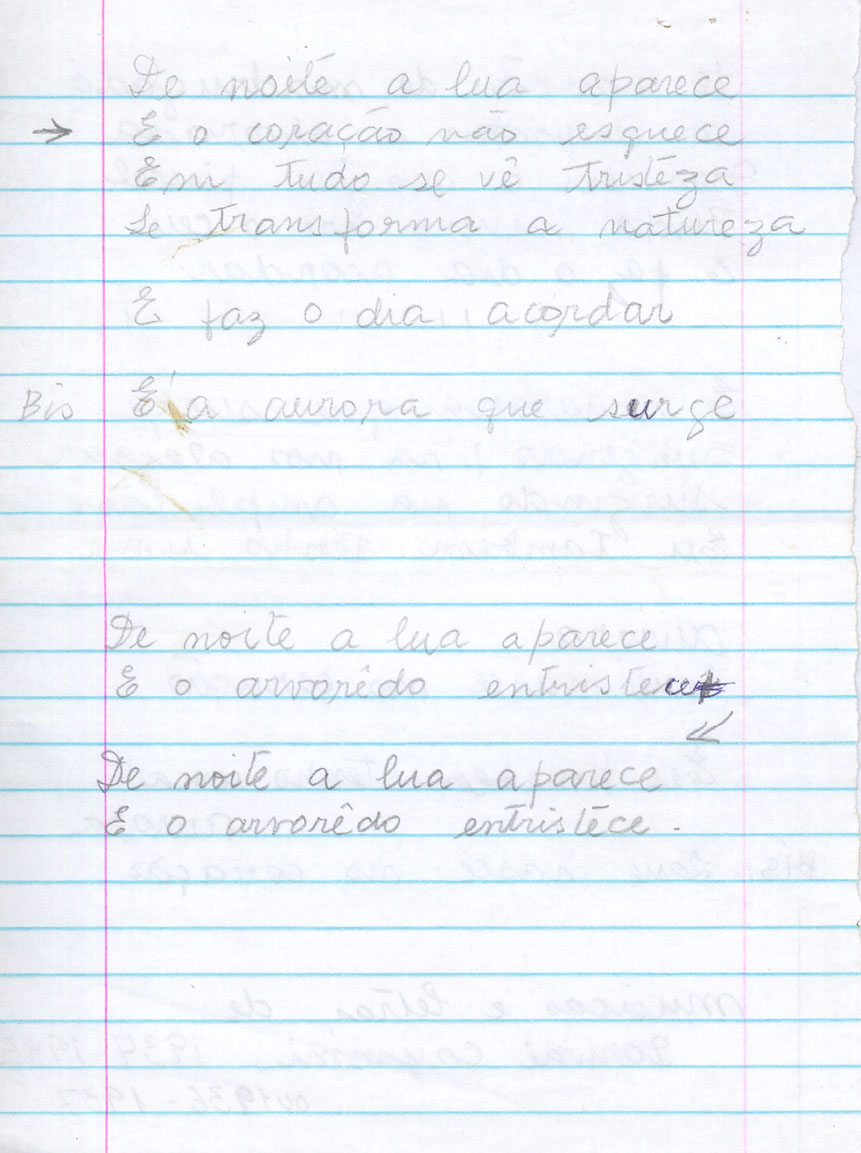 De noite a lua aparece
→ E o coração não esquece
Em tudo se vê tristêza
Se transforma a natureza
E faz o dia acordar
Bis E' a aurora que surge
De noite a lua aparece
E o arvorêdo entristece
De noite a lua aparece
E o arvorêdo entristéce.